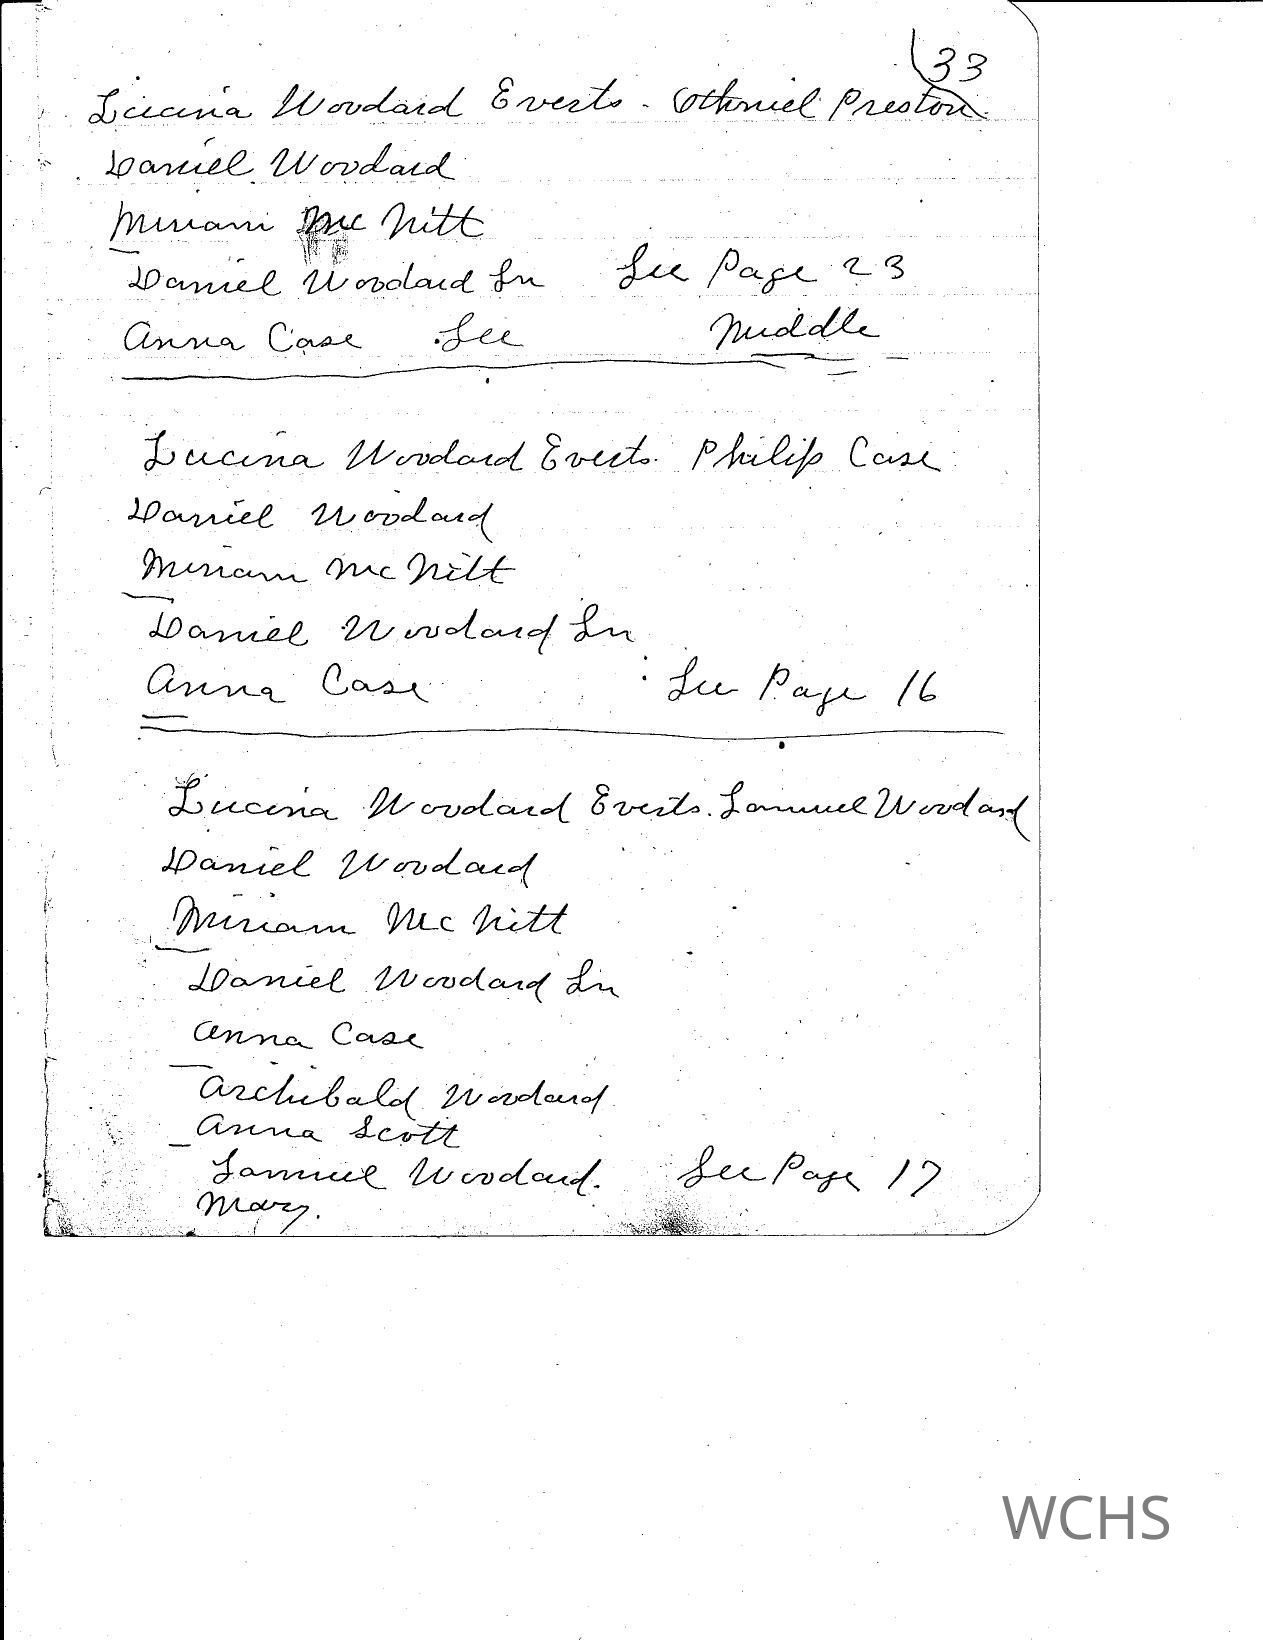 33
Lucina Woodard Everts - Othniel Preston
Daniel Woodard
Miriam Mc Nitt
Daniel Woodard Sn See Page 23
Anna Case See Middle
Lucina Woodard Everts. Philip Case
Daniel Woodard
Miriam Mc Nitt
Daniel Woodard Sn
Anna Case See Page 16
Lucina Woodard Everts. Samuel Woodard
Daniel Woodard
Miriam Mc Nitt
Daniel Woodard Sn
Anna Case
Archibald Woodard
Anna Scott
Samuel Woodard. See Page 17
Mary.
WCHS